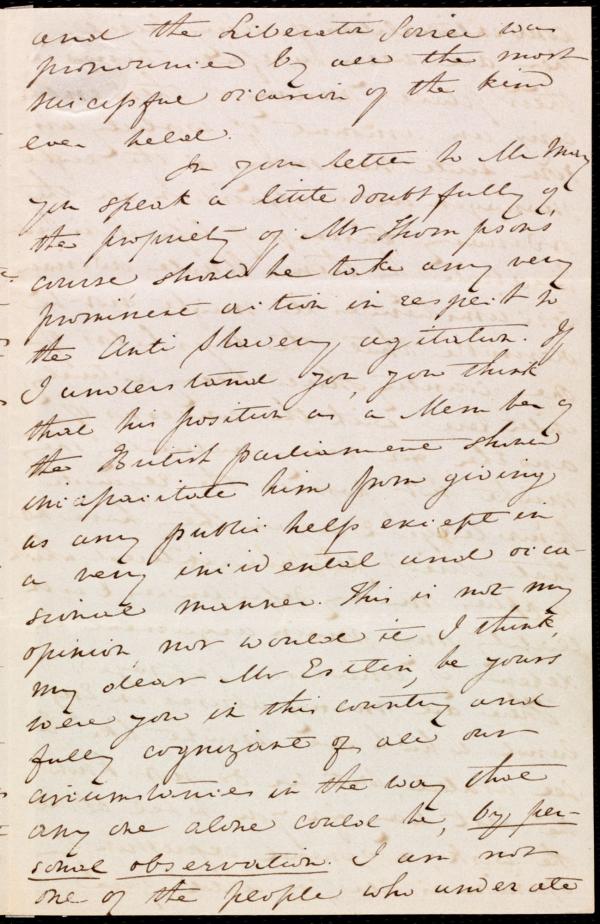 and the Liberator Soirée was
pronounced by all the most
successful occasion of the kind
ever held.
In your letter to Mr May
you speak a little doubtfully of
the propriety of Mr Thompson's
course should he take any very
prominent action in respect to
the Anti Slavery agitation. If
I understand you, you think
that his position as a Member of
the British parliament should
incapacitate him from giving
us any public help except in
a very incidental and occa-
sional manner. This is not my
opinion, nor would it I think,
my dear Mr Estlin, be yours
were you in this country and
fully cognizant of all our
circumstances in the way that
any one alone could be, by per-
sonal observation. I am not
one of the people who underrate